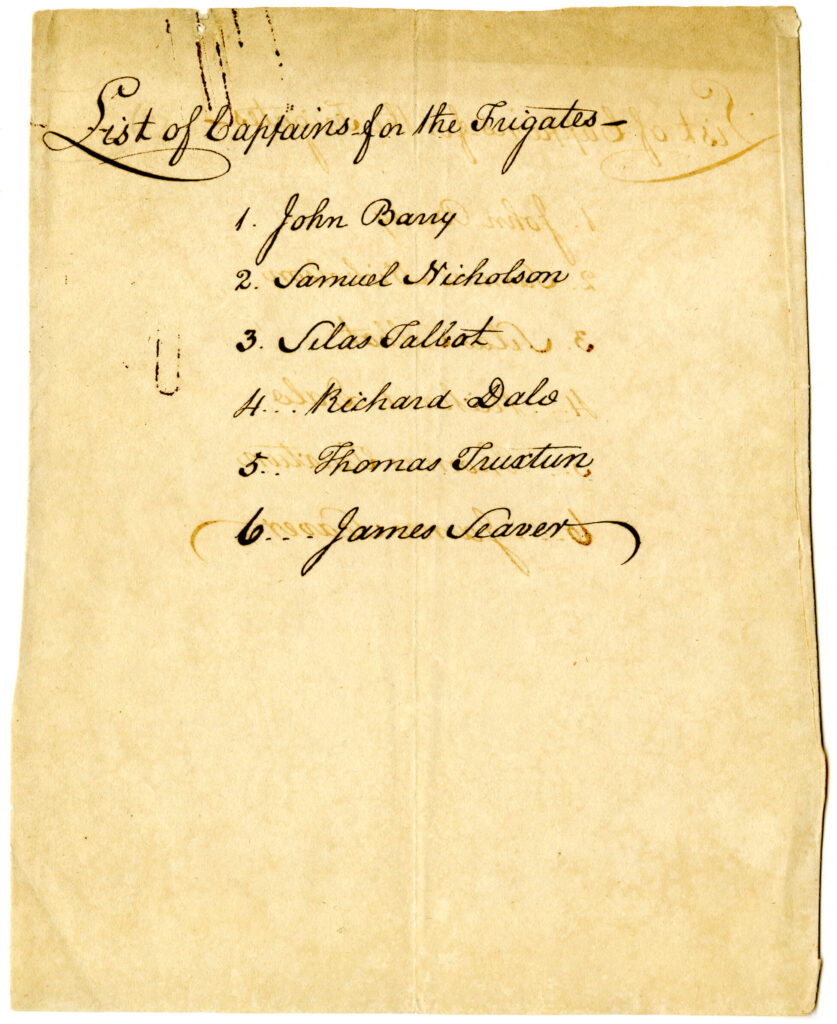 List of Captains for the Frigates—
1. John Barry
2. Samuel Nicholson
3. Silas Talbot
4... Richard Dale
5.. Thomas Truxtun,
6... James Seaver